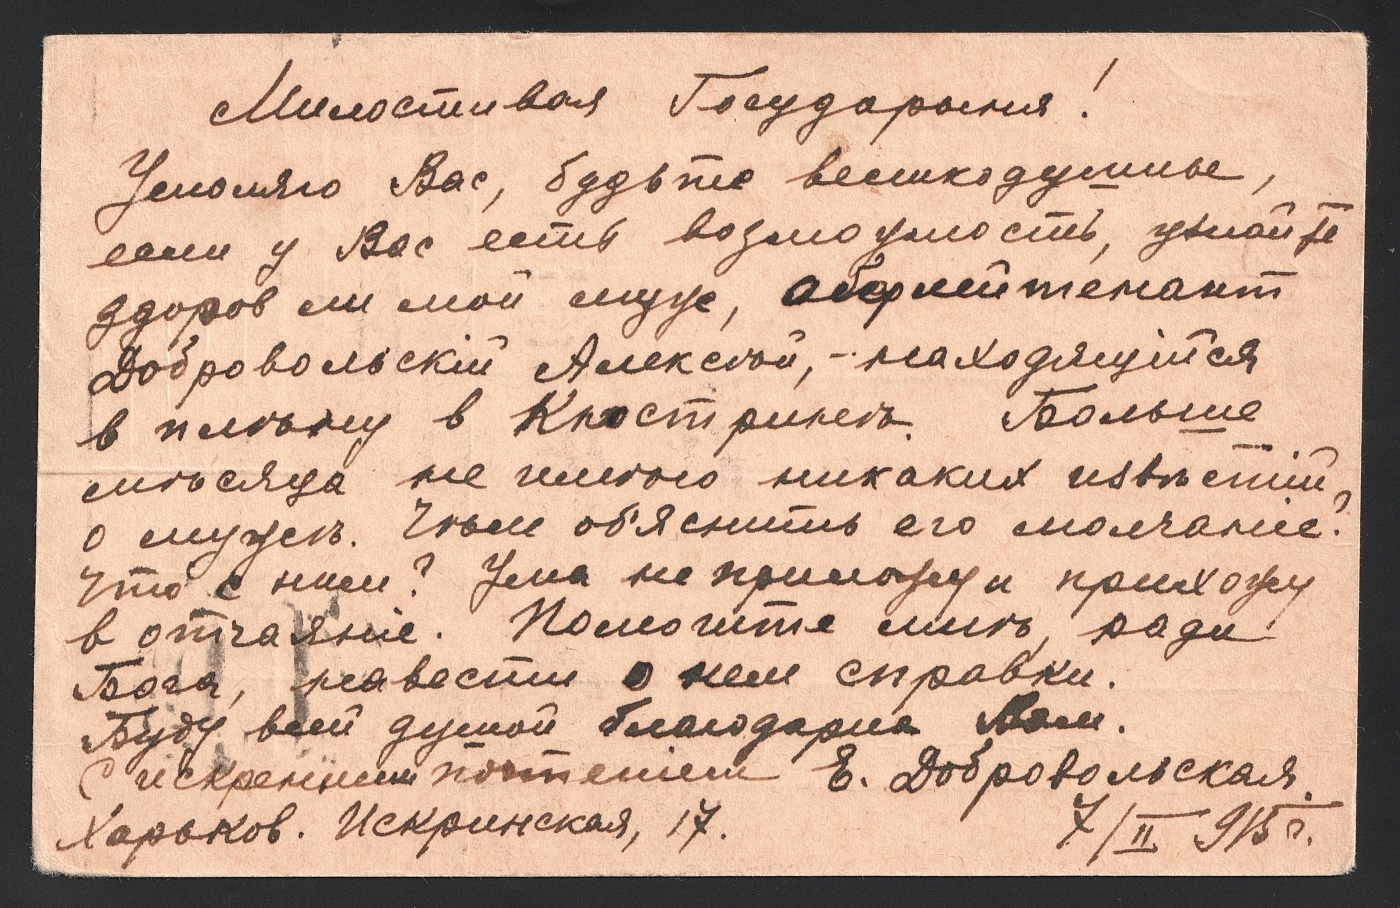 Милостивая Государыня!
Умоляю Вас, будьте великодушные,
если у Вас есть возможность, узнайте
здоров ли мой муж, оберлейтенант
Добровольскiй Алексѣй, - находящiйся
в плѣну в Кюстринѣ. Больше
мѣсяца не имѣю никаких извѣстiй
о мужѣ. Чѣм об'яснить его молчанiе?
Что с ним? Ума не приложу и прихожу
в отчаянiе. Помогите мнѣ, ради
Бога, навести о нем справки.
Буду всей душой благодарна Вам.
С искренним почтенiем Е. Добровольская.
Харьков. Искринская, 17. 7/II 915 г.